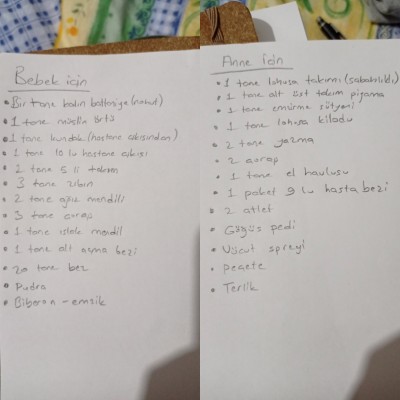 Bebek için
Bir tane kalın battaniye (nohut)
1 tane müslin örtü
1 tane kundak (hastane çıkısından)
1 tane 10 lu hastane çıkısı
2 tane 5 li takım
3 tane zibin
2 tane ağız mendili
3 tane çorap
1 tane ıslak mendil
1 tane alt açma bezi
20 tane bez
Pudra
Biberon - emzik
Anne için
1 tane lohusa takımı (sabahlıklı)
1 tane alt üst takım pijama
1 tane emzirme sütyeni
1 tane lohusa kilodu
2 tane yazma
2 çorap
1 tane el havlusu
1 paket 9 lu hasta bezi
2 atlet
Göğüs pedi
Vücut spreyi
peçete
Terlik